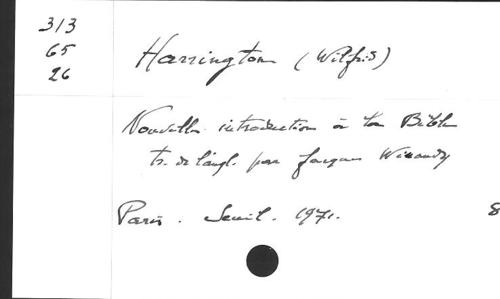 313
65
26
Harrington (Wilfrid)
Nouvelle introduction à la Bible
tr. de l'angl. par Jacques Winandy
Paris. Seuil. 1971.
8